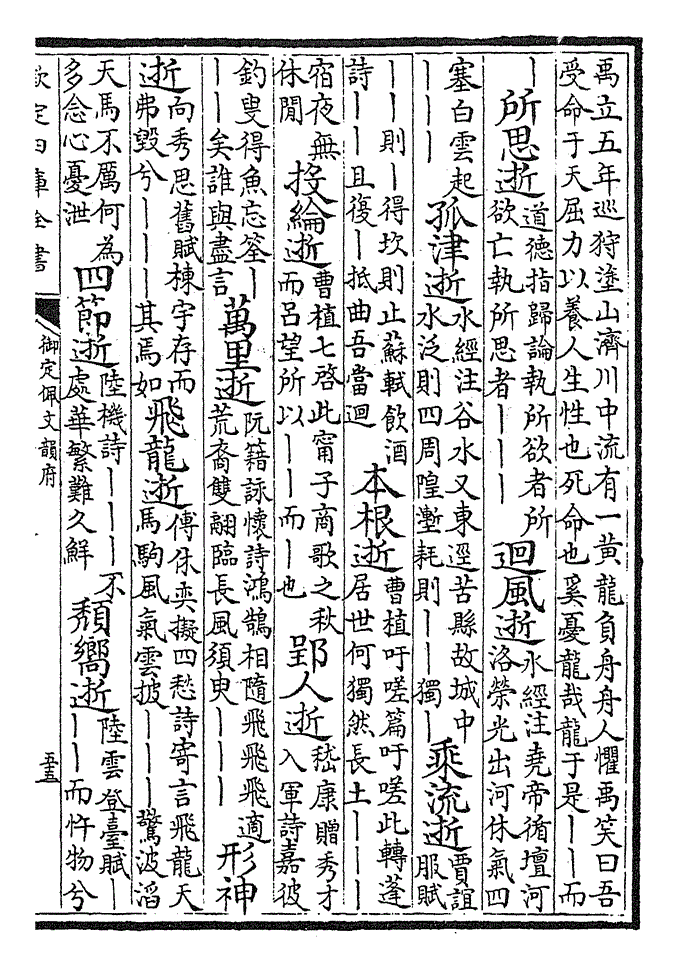 禹立五年巡狩塗山濟川中流有一黃龍負舟舟人懼禹笑曰吾
受命于天屈力以養人生性也死命也奚憂龍哉龍于是｜｜而
｜所思逝道德指歸論執所欲者所
欲亡執所思者｜｜｜迴風逝水經注堯帝脩壇河
洛榮光出河休氣四
塞白雲起
｜｜｜孤津逝水經注谷水又東逕苦縣故城中
水泛則四周隍塹耗則｜｜獨｜乘流逝賈誼
服賦
｜｜則｜得坎則止蘇軾飲酒
詩｜｜且復｜抵曲吾當迴本根逝曹植吁嗟篇吁嗟此轉蓬
居世何獨然長土｜｜｜
宿夜無
休閒投綸逝曹植七啓此甯子商歌之秋
而呂望所以｜｜而｜也郢人逝嵇康贈秀才
入軍詩嘉彼
釣叟得魚忘筌｜
｜矣誰與盡言萬里逝阮籍詠懷詩鴻鵠相隨飛飛飛適
荒裔雙翮臨長風須臾｜｜｜形神
逝向秀思舊賦棟宇存而
弗毀兮｜｜｜其焉如飛龍逝傅休奕擬四愁詩寄言飛龍天
馬駒風氣雲披｜｜｜驚波滔
天馬不厲何為
多念心憂泄四節逝陸機詩｜｜｜不
處華繁難久鮮頹嚮逝陸雲登臺賦｜
｜｜而忤物兮
欽定四庫全書
御定佩文韻府
五十五